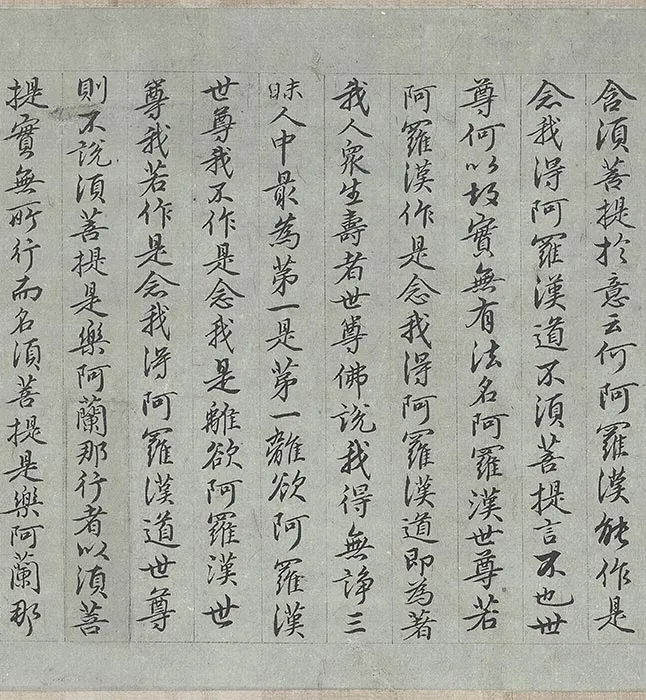 含須菩提於意云何阿羅漢能作是
念我得阿羅漢道不須菩提言不也世
尊何以故實無有法名阿羅漢世尊若
阿羅漢作是念我得阿羅漢道即為著
我人眾生壽者世尊佛說我得無諍三
昧人中最為第一是第一離欲阿羅漢
世尊我不作是念我是離欲阿羅漢世
尊我若作是念我得阿羅漢道世尊
則不說須菩提是樂阿蘭那行者以須菩
提實無所行而名須菩提是樂阿蘭那